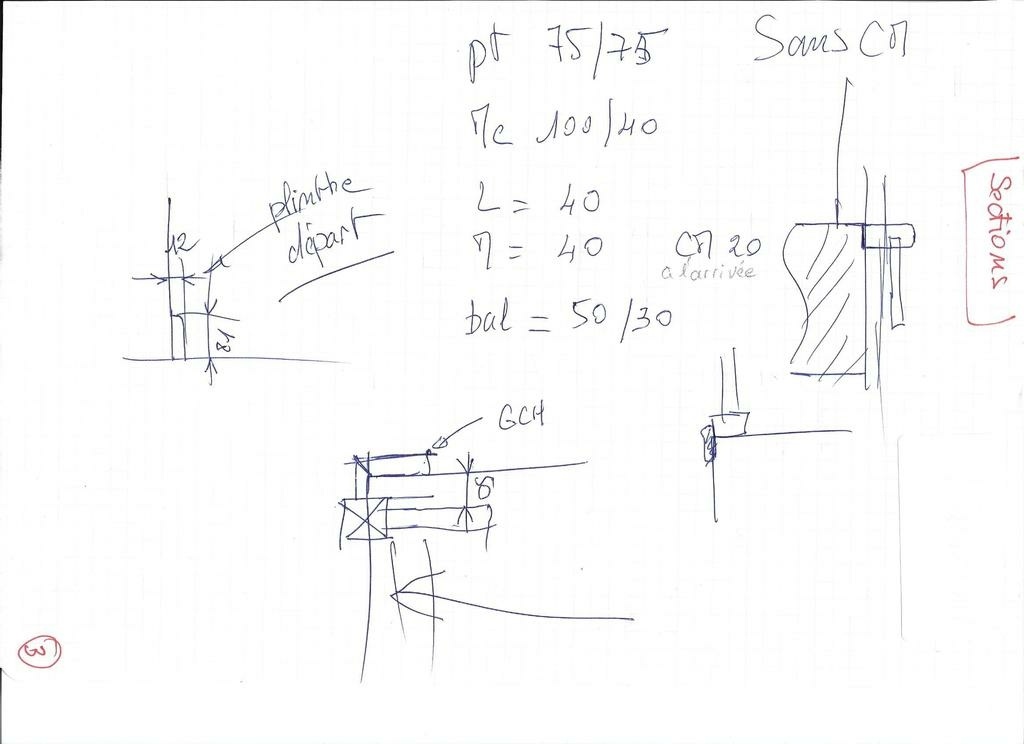 pt 75/75
Sans CM
Mc 100/40
L = 40
M = 40
CM 20
a l'arrivée
bal = 50/30
plinthe
départ
12
81
GCH
8
Sections
3